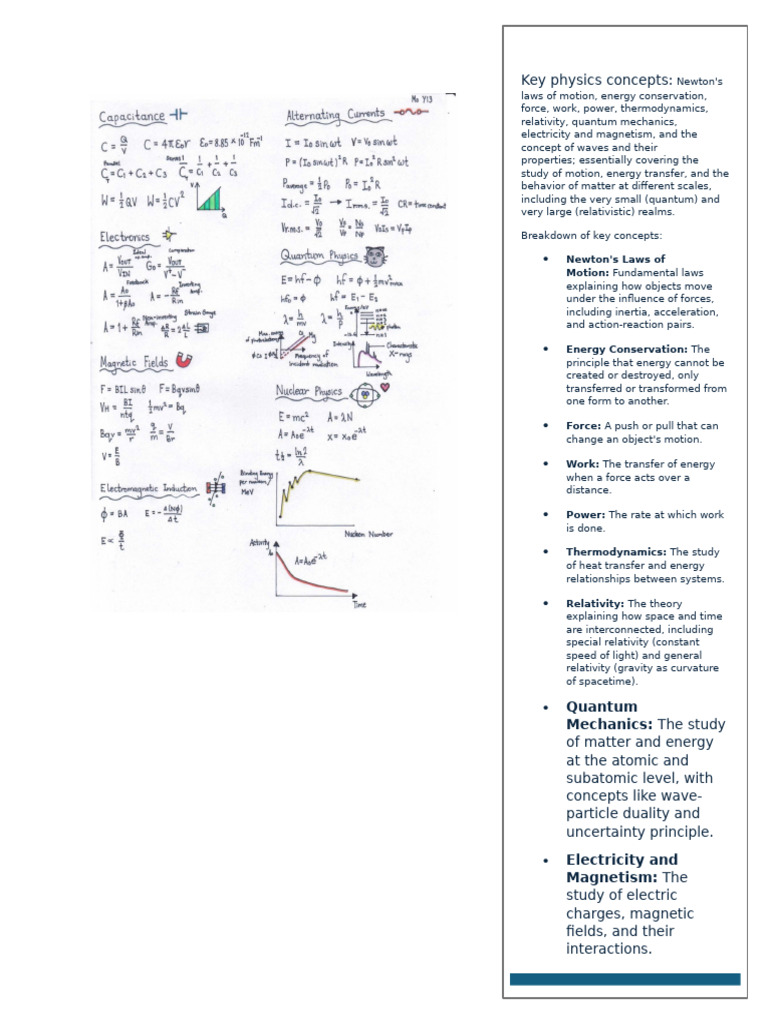 Mo Y13
Capacitance
C = Q/V C = 4πε₀r ε₀ = 8.85 × 10⁻¹² Fm⁻¹
Parallel Series
C_T = C₁ + C₂ + C₃ 1/C_T = 1/C₁ + 1/C₂ + 1/C₃
W = ½QV W = ½CV²
V
Q
Electronics
Ideal Comparator
A = V_OUT/V_IN G₀ = V_OUT/V⁺-V⁻
Feedback Inverting Amp.
A = A₀/1+βA₀ A = -Rf/Rin
Non-inverting Amp. Strain Gauge
A = 1 + Rf/Rin ΔR/R = 2ΔL/L
Magnetic Fields
F = BIL sinθ F = Bqv sinθ
V_H = BI/ntq ½mv² = Bq
Bqv = mv²/r q/m = V/Br
V = E/B
Electromagnetic Induction
ϕ = BA E = -Δ(Nϕ)/Δt
E ∝ Φ/t
Alternating Currents
I = I₀ sin ωt V = V₀ sin ωt
P = (I₀ sin ωt)²R P = I₀²R sin² ωt
Paverage = ½P₀ P₀ = I₀²R
Id.c. = I₀/√2 → Ir.m.s. = I₀/√2 CR = time constant
Vr.m.s. = V₀/√2 Vs/Vp = Ns/Np VsIs = VpIp
Quantum Physics
E = hf - ϕ hf = ϕ + ½mv²max
hf₀ = ϕ hf = E₁ - E₂
λ = h/mv λ = h/p
Energy/eV
Photon
Mg
Frequency of
incident radiation
Intensity
Characteristic
X-rays
Wavelength
Nuclear Physics
E = mc² A = λN
A = A₀e^-λt x = x₀e^-λt
t½ = ln2/λ
Binding Energy
per nucleon/
MeV
Nucleon Number
Activity
A₀
A = A₀e^-λt
Time
Key physics concepts: Newton's
laws of motion, energy conservation,
force, work, power, thermodynamics,
relativity, quantum mechanics,
electricity and magnetism, and the
concept of waves and their
properties; essentially covering the
study of motion, energy transfer, and the
behavior of matter at different scales,
including the very small (quantum) and
very large (relativistic) realms.
Breakdown of key concepts:
• Newton's Laws of
Motion: Fundamental laws
explaining how objects move
under the influence of forces,
including inertia, acceleration,
and action-reaction pairs.
• Energy Conservation: The
principle that energy cannot be
created or destroyed, only
transferred or transformed from
one form to another.
• Force: A push or pull that can
change an object's motion.
• Work: The transfer of energy
when a force acts over a
distance.
• Power: The rate at which work
is done.
• Thermodynamics: The study
of heat transfer and energy
relationships between systems.
• Relativity: The theory
explaining how space and time
are interconnected, including
special relativity (constant
speed of light) and general
relativity (gravity as curvature
of spacetime).
• Quantum
Mechanics: The study
of matter and energy
at the atomic and
subatomic level, with
concepts like wave-
particle duality and
uncertainty principle.
• Electricity and
Magnetism: The
study of electric
charges, magnetic
fields, and their
interactions.